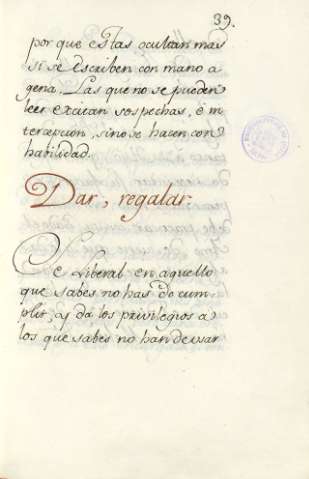 39.
por que estas ocultan mas
si se escriben con mano a
gena. Las que no se pueden
leer excitan sospechas, é in
tercepcion, sino se hacen con
habilidad.
Dar, regalar.
Sé Liberal en aquello
que sabes no has de cum
plir, y da los privilegios a
los que sabes no han de usar